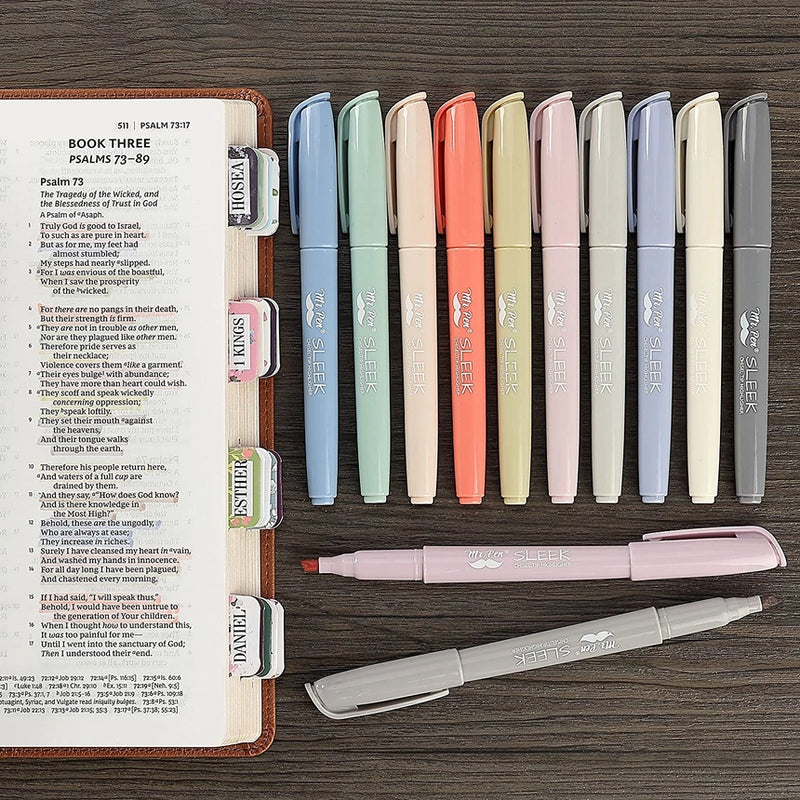 511 | PSALM 73:17
BOOK THREE
PSALMS 73–89
Psalm 73
The Tragedy of the Wicked, and
the Blessedness of Trust in God
A Psalm of ᵃAsaph.
1 Truly God is good to Israel,
To such as are pure in heart.
2 But as for me, my feet had
almost stumbled;
My steps had nearly ᵃslipped.
3 ᵃFor I was envious of the boastful,
When I saw the prosperity
of the ᵇwicked.
For there are no pangs in their death,
But their strength is firm.
5 ᵃThey are not in trouble as other men,
Nor are they plagued like other men.
6 Therefore pride serves as
their necklace;
Violence covers them ᵃlike a garment.
7 ᵃTheir eyes bulge¹ with abundance;
They have more than heart could wish.
8 ᵃThey scoff and speak wickedly
concerning oppression;
They ᵇspeak loftily.
9 They set their mouth ᵃagainst
the heavens,
And their tongue walks
through the earth.
10 Therefore his people return here,
ᵃAnd waters of a full cup are
drained by them.
11 And they say, ᵃ“How does God know?
And is there knowledge in
the Most High?”
12 Behold, these are the ungodly,
Who are always at ease;
They increase in riches.
13 Surely I have cleansed my heart in ᵃvain,
And washed my hands in innocence.
14 For all day long I have been plagued,
And chastened every morning.
15 If I had said, “I will speak thus,”
Behold, I would have been untrue to
the generation of Your children.
16 When I thought how to understand this,
It was too painful for me—
17 Until I went into the sanctuary of God;
Then I understood their ᵃend.
HOSEA
1 KINGS
ESTHER
DANIEL
Mr. Pen SLEEK
Mr. Pen SLEEK
Mr. Pen SLEEK
Mr. Pen SLEEK
Mr. Pen SLEEK
Mr. Pen SLEEK
Mr. Pen SLEEK
Mr. Pen SLEEK
Mr. Pen SLEEK
Mr. Pen SLEEK
Mr. Pen SLEEK
CHISEL TIP HIGHLIGHTER
Mr. Pen SLEEK
CHISEL TIP HIGHLIGHTER